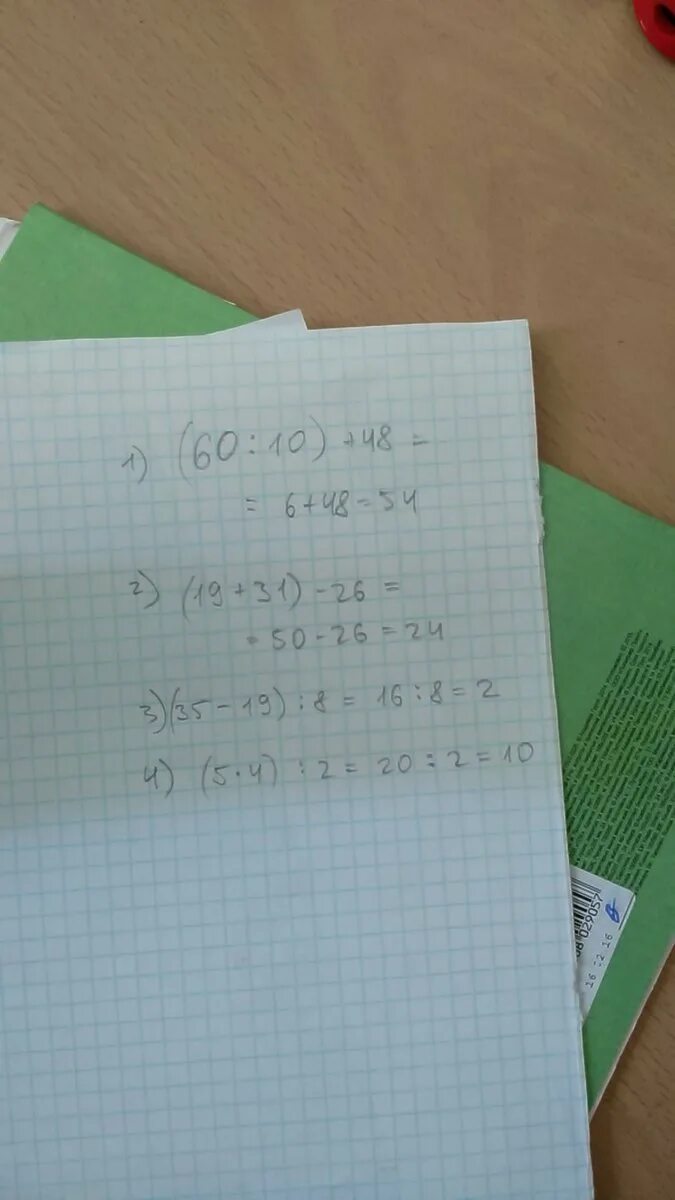 1) (60 : 10) + 48 =
= 6 + 48 = 54
2) (19 + 31) - 26 =
= 50 - 26 = 24
3) (35 - 19) : 8 = 16 : 8 = 2
4) (5 · 4) : 2 = 20 : 2 = 10
029057